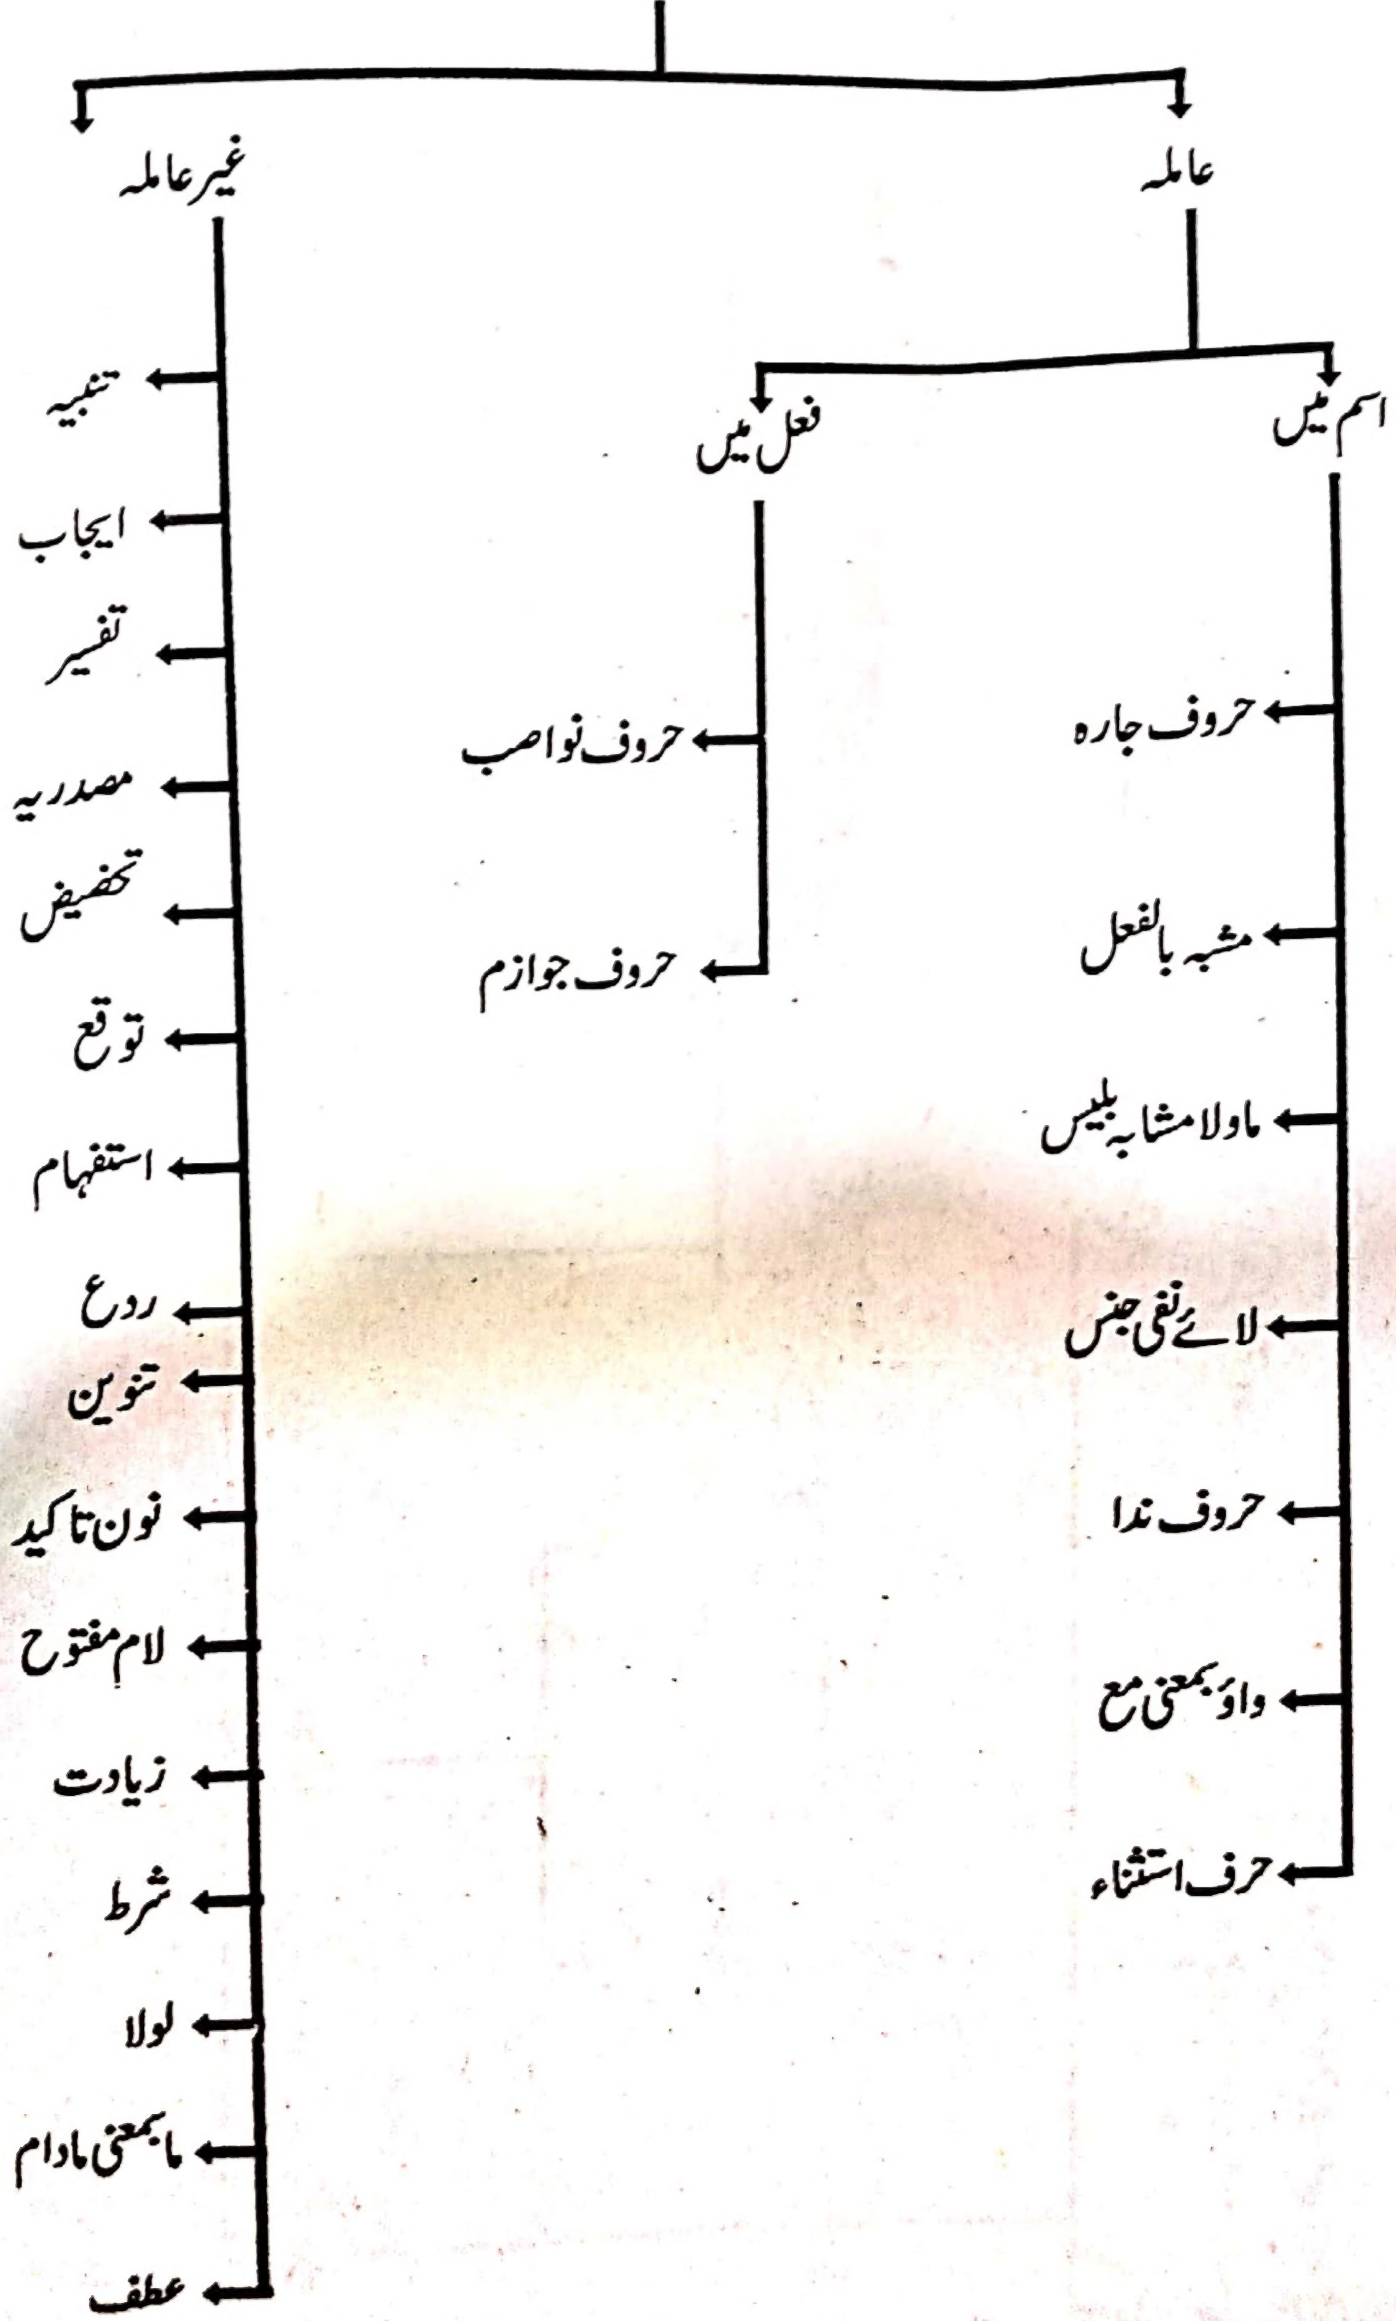 عاملہ
غیر عاملہ
اسم میں
فعل میں
حروف جارہ
مشبہ بالفعل
ما ولا مشابہ بلیس
لائے نفی جنس
حروف ندا
واؤ بمعنی مع
حرف استثناء
حروف نواصب
حروف جوازم
تنبیہ
ایجاب
تفسیر
مصدریہ
تحضیض
توقع
استفہام
ردع
تنوین
نون تاکید
لام مفتوح
زیادت
شرط
لولا
ما بمعنی مادام
عطف